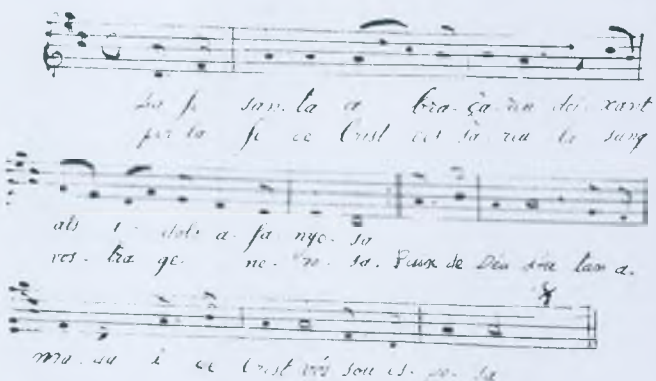 La fe san-ta a bra-ça-ren dei-xant
per la fe de Crist ves-sà-reu la sang
als i-dols a-fa-nyo-sa
vos-tra ge-ne-ro-sa. Puix de Déu sou tan a-
ma-da i de Crist vós sou es-po-sa